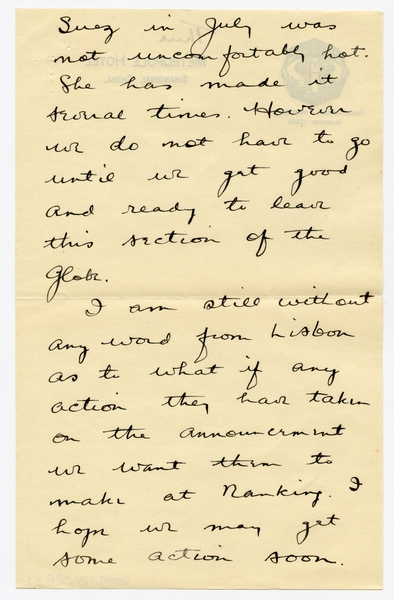 Suez in July was
not uncomfortably hot.
She has made it
several times. However
we do not have to go
until we get good
and ready to leave
this section of the
Globe.
I am still without
any word from Lisbon
as to what if any
action they have taken
on the announcement
we want them to
make at Nanking. I
hope we may get
some action soon.